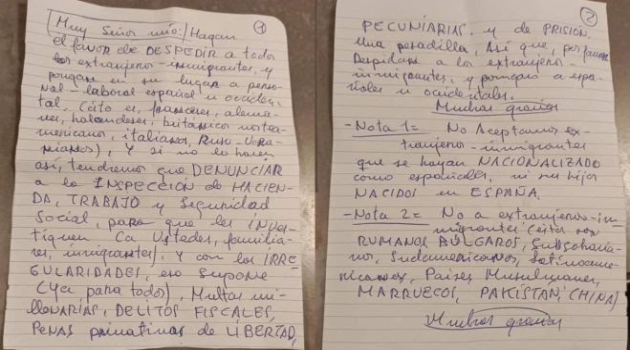 1
Muy Señor mío:/Hagan
el favor de DESPEDIR a todos
los extranjeros-inmigrantes, y
pongan en su lugar a perso-
nal-laboral español u occiden-
tal. (Esto es, franceses, alema-
nes, holandeses, británicos norte-
americanos, italianos, Ruso-Ucra-
nianos), Y si no lo hacen
así, tendremos que DENUNCIAR
a la INSPECCIÓN de HACIEN-
DA, TRABAJO y Seguridad
Social, para que les inves-
tiguen (a Ustedes, familia-
res, inmigrantes). Y con las IRRE-
GULARIDADES, eso supone
(ya para todos), Multas mi-
llonarias, DELITOS FISCALES,
Penas privativas de LIBERTAD,
2
PECUNIARIAS, y de PRISIÓN.
Una pesadilla, Así que, por favor
Despidan a los extranjeros-
inmigrantes, y pongan a espa-
ñoles u occidentales.
Muchas gracias
-Nota 1= No Aceptamos ex-
tranjeros-inmigrantes
que se hayan NACIONALIZADO
como españoles, ni su hijos
NACIDOS en ESPAÑA.
-Nota 2= No a extranjeros-in-
migrantes (Estos son
RUMANOS BÚLGAROS, Subsaharia-
nos, Sudamericanos, Latinoame-
ricanos, Países Musulmanes,
MARRUECOS, PAKISTAN, CHINA)
Muchas gracias